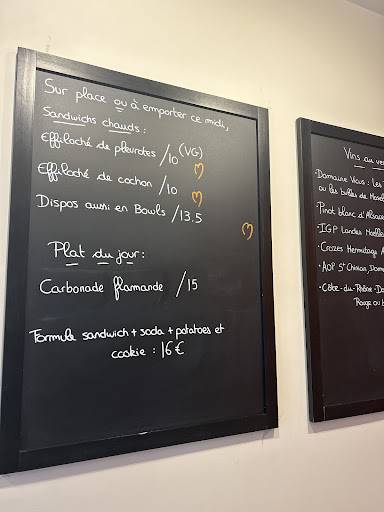 Sur place ou à emporter ce midi,
Sandwichs chauds :
Effiloché de pleurotes /10 (VG)
Effiloché de cochon /10
Dispos aussi en Bowls /13.5
Plat du jour :
Carbonade flamande /15
Formule sandwich + soda + potatoes et
cookie : 16€
Vins au ve
• Domaine Vious : Les
ou les bulles de
• Pinot blanc d'Alsace
• IGP Landes
• Crozes Hermitage
• AOP St Chinian, Dom
• Côte-du-Rhône Do
Rouge ou b